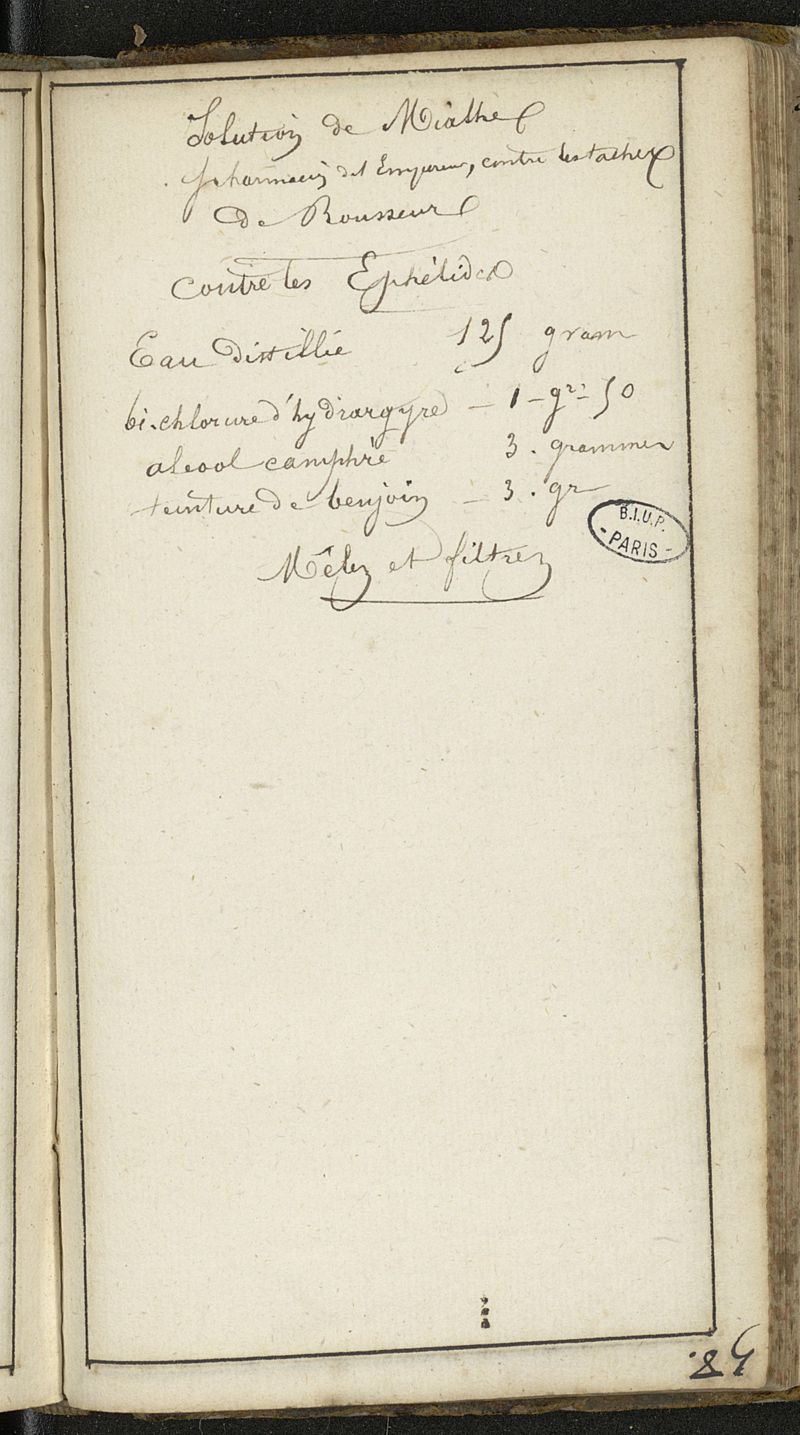 Solution de Mialhe
pharmacien de l'Empereur, contre les taches
de Rousseur
contre les Ephélides
Eau distillée 125 gram
bi-chlorure d'hydrargyre — 1 - gr: 50
alcool camphré 3. grammes
teinture de benjoin — 3. gr
Mêlez et filtrez
B.I.U.P.
- PARIS -